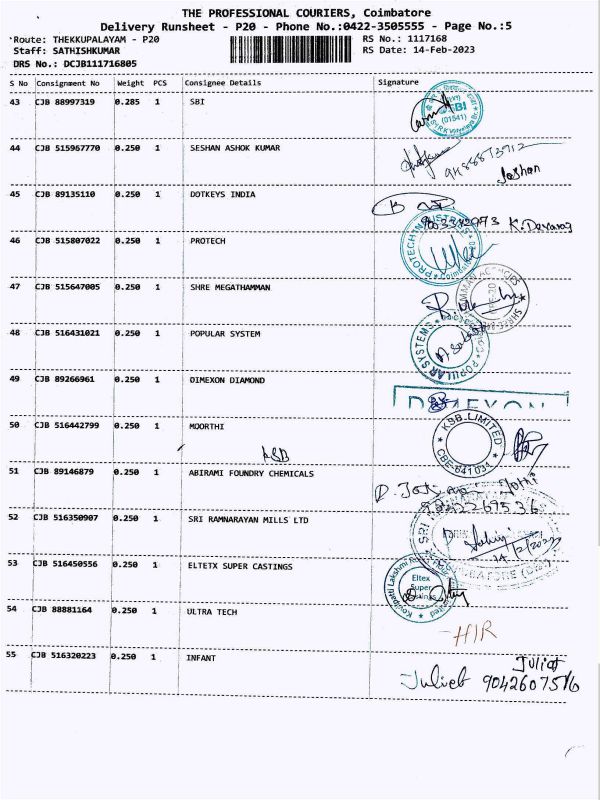 THE PROFESSIONAL COURIERS, Coimbatore
Delivery Runsheet - P20 - Phone No.:0422-3505555 - Page No.:5
Route: THEKKUPALAYAM - P20 RS No.: 1117168
Staff: SATHISHKUMAR RS Date: 14-Feb-2023
DRS No.: DCJB111716805
S No Consignment No Weight PCS Consignee Details Signature
43 CJB 88997319 0.285 1 SBI
SBI
(01541)
44 CJB 515967770 0.250 1 SESHAN ASHOK KUMAR
45 CJB 89135110 0.250 1 DOTKEYS INDIA
K. Devaraj
46 CJB 515807022 0.250 1 PROTECH
47 CJB 515647005 0.250 1 SHRE MEGATHAMMAN
48 CJB 516431021 0.250 1 POPULAR SYSTEM
POPULAR SYSTEMS
49 CJB 89266961 0.250 1 DIMEXON DIAMOND
DIMEXON
50 CJB 516442799 0.250 1 MOORTHI
KSB
KSB LIMITED
CBE-641031
51 CJB 89146879 0.250 1 ABIRAMI FOUNDRY CHEMICALS
52 CJB 516350907 0.250 1 SRI RAMNARAYAN MILLS LTD
14/2/2023
53 CJB 516450556 0.250 1 ELTETX SUPER CASTINGS
Eltex
Super
54 CJB 88881164 0.250 1 ULTRA TECH
HIR
55 CJB 516320223 0.250 1 INFANT
Juliet
Juliet 9042607516